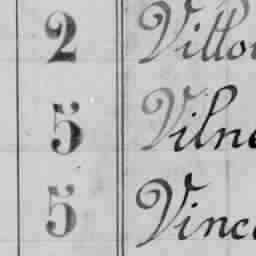 2 Villo
5 Vilne
5 Vince